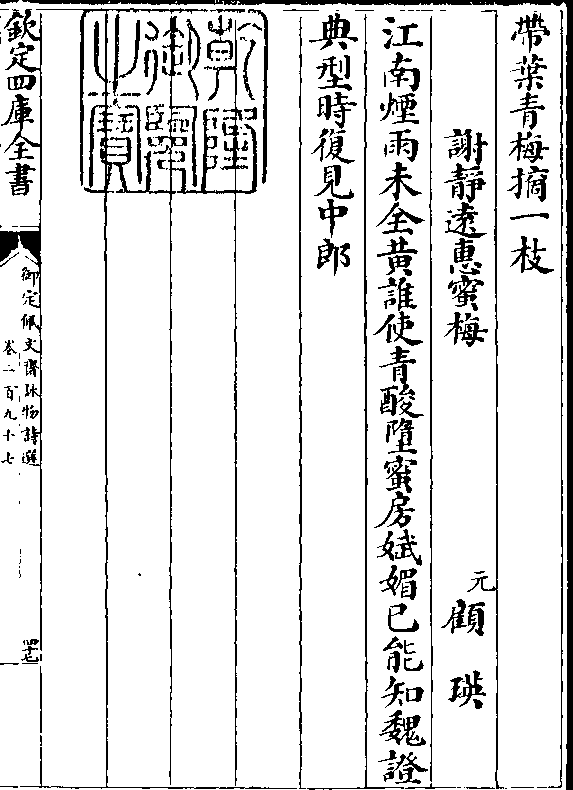 帶葉青梅摘一枝
謝靜遠惠蜜梅
元
顧瑛
江南煙雨未全黄誰使青酸墮蜜房娬媚已能知魏證
典型時復見中郎
乾隆御覽之寶
欽定四庫全書
御定佩文齋詠物詩選
卷二百九十七
四十七